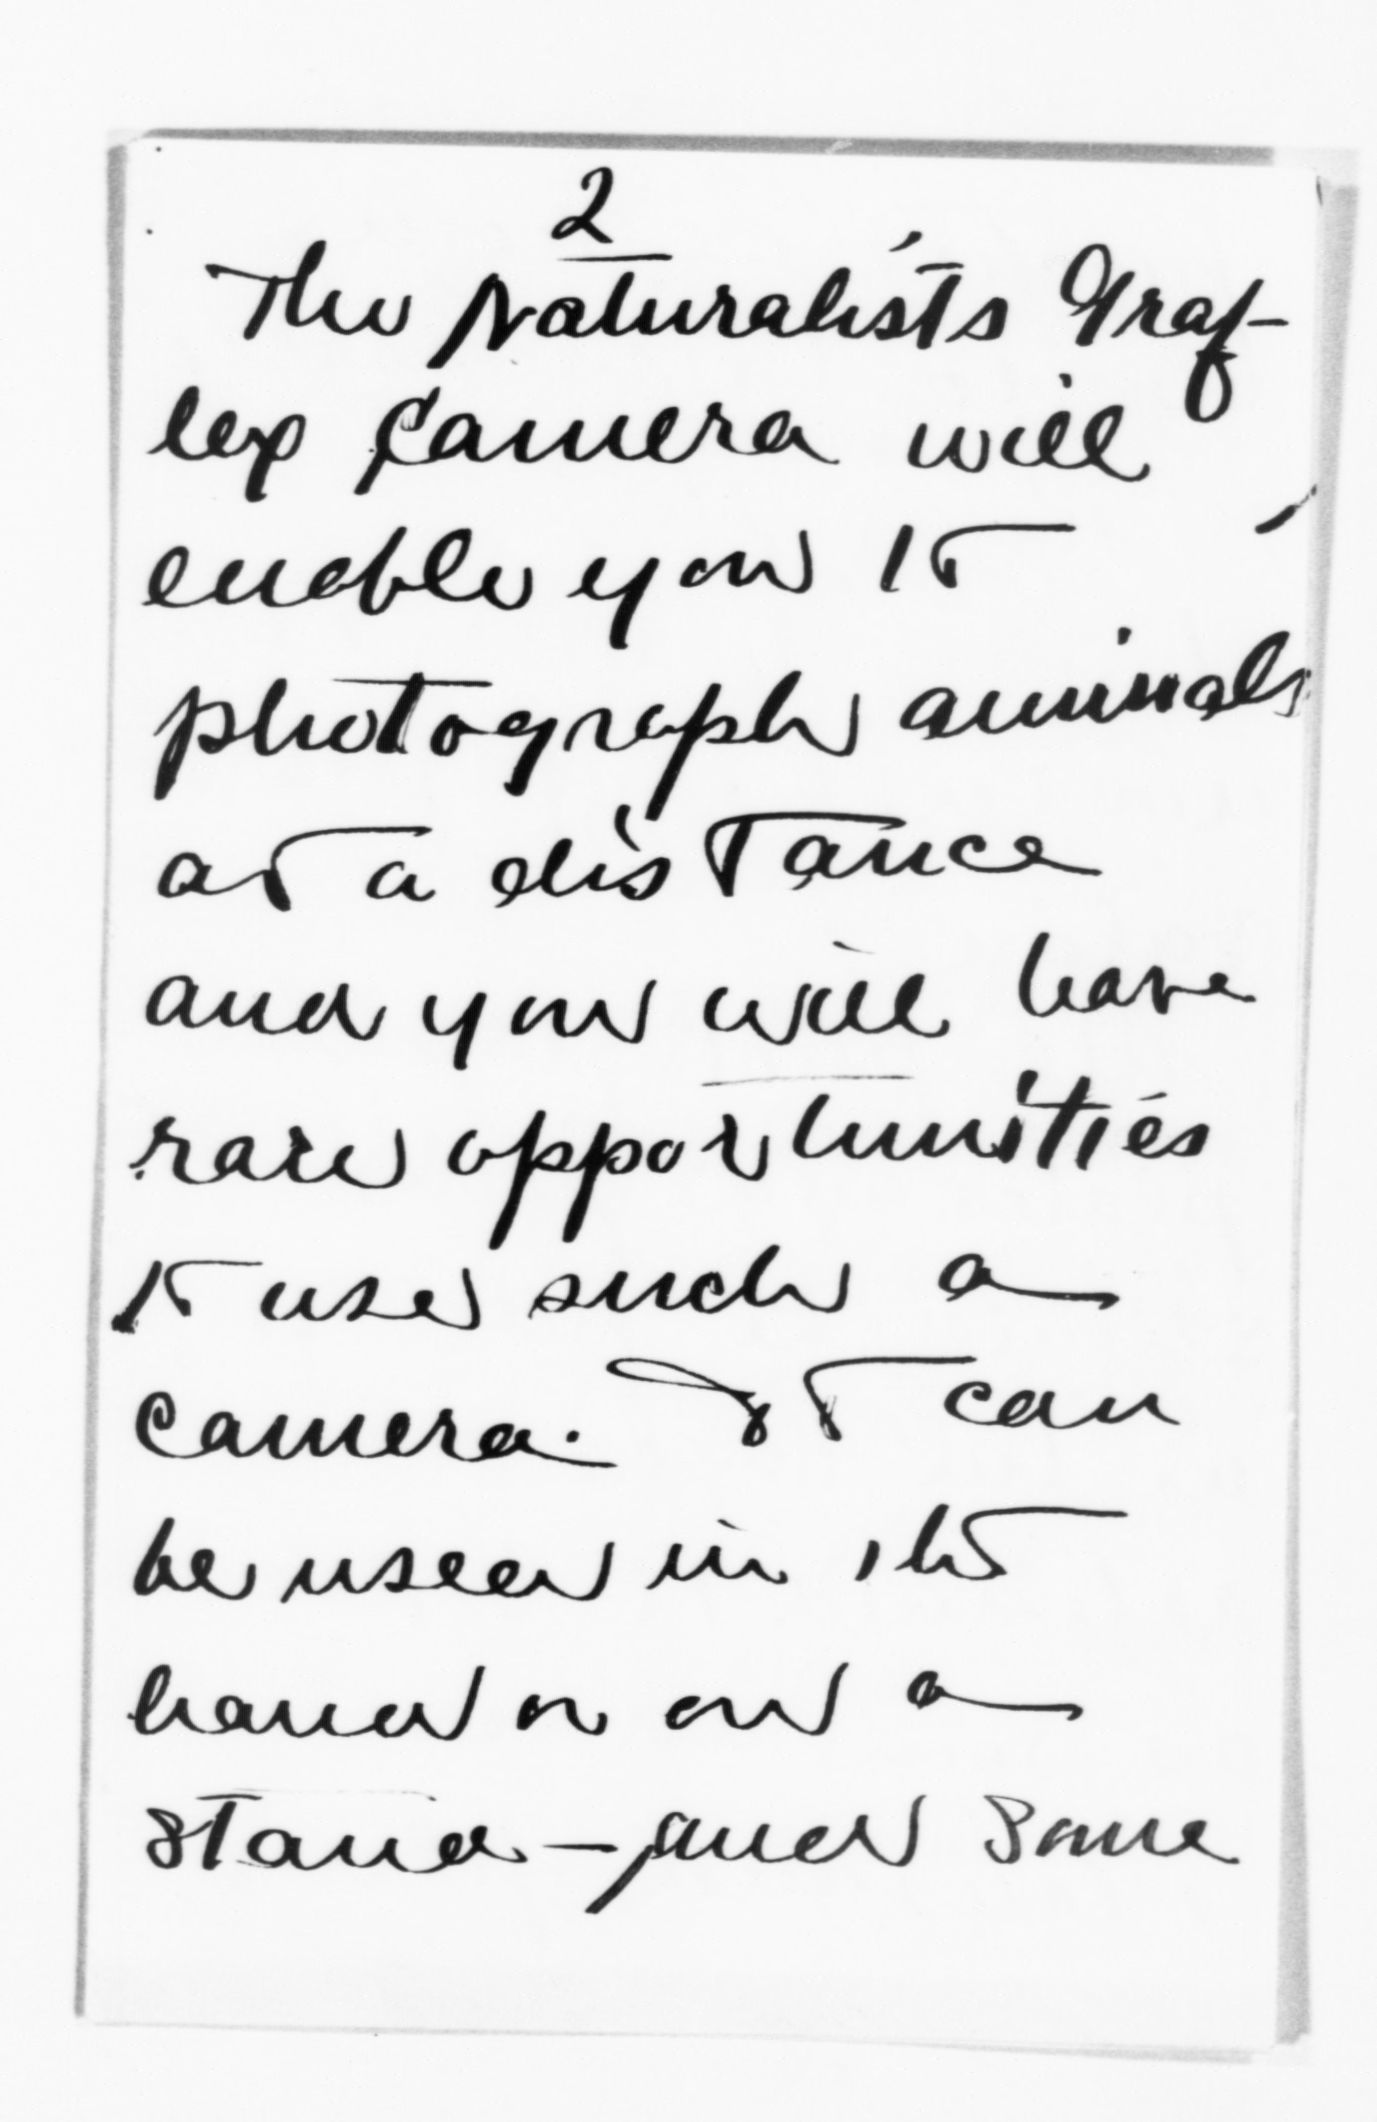 2
The Naturalists Graf-
lex Camera will
enable you to
photograph animals
at a distance
and you will have
rare opportunities
to use such a
camera. It can
be used in the
hand or on a
stand - and some